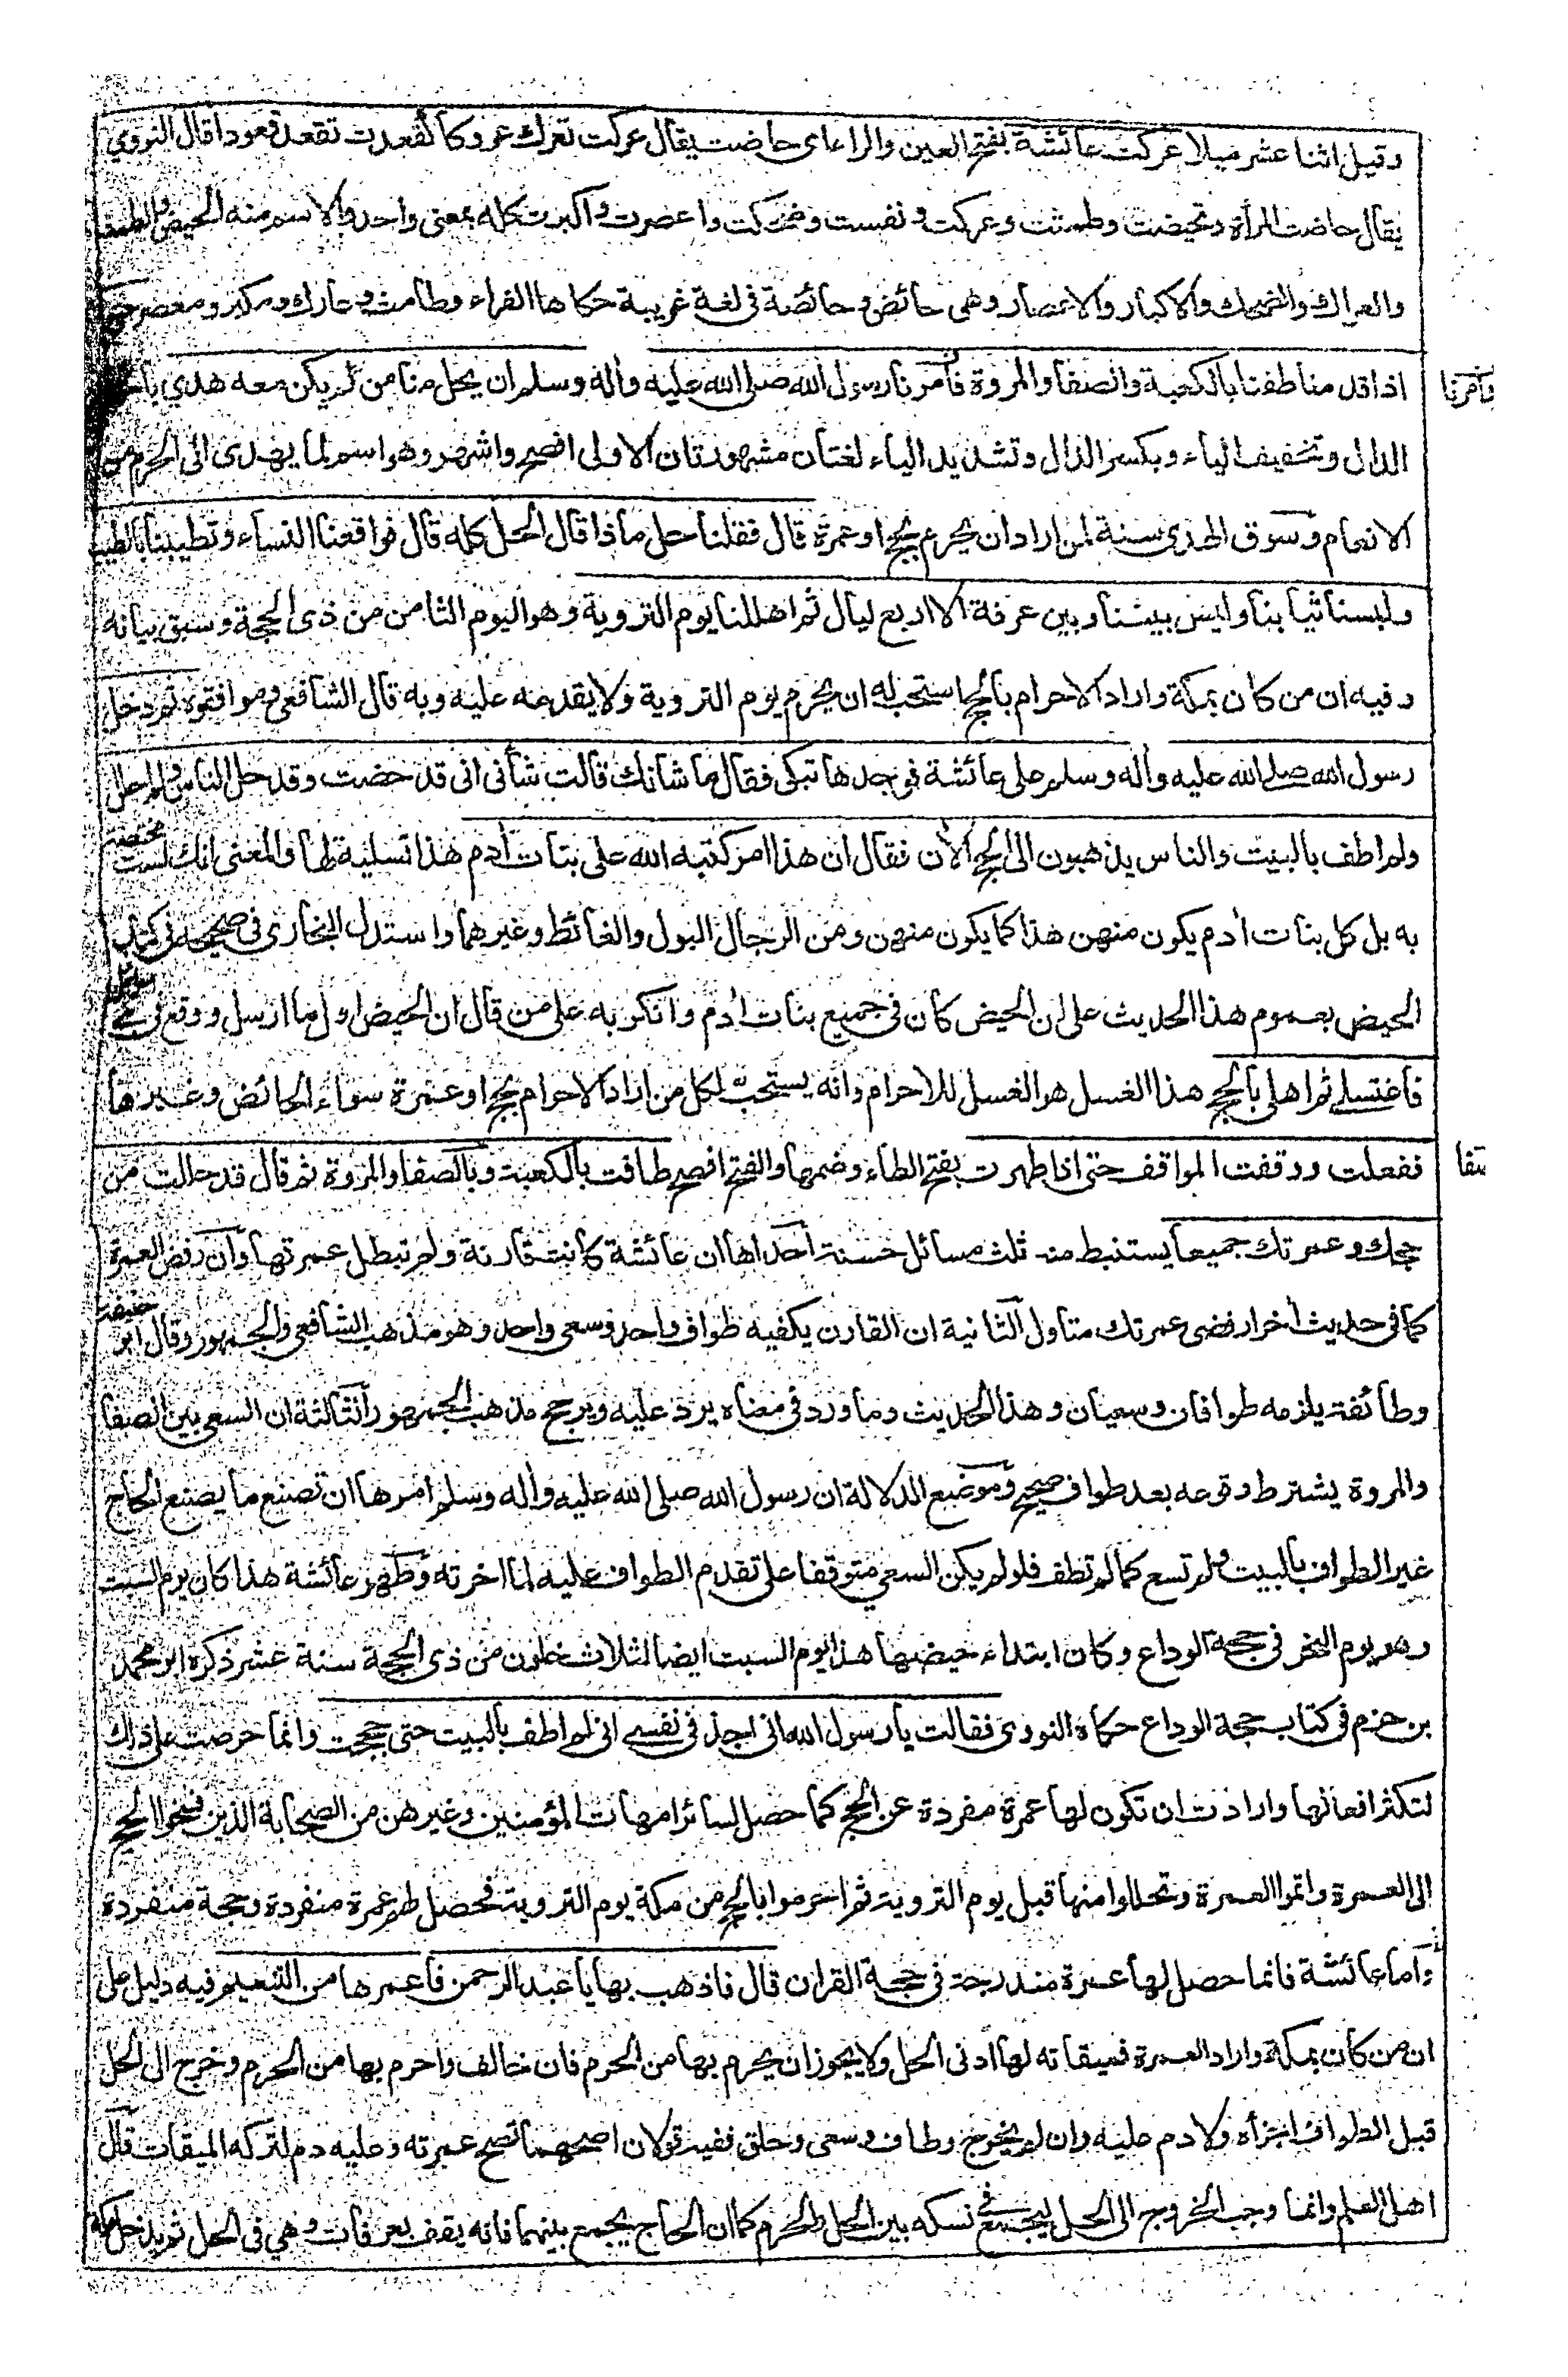 وقيل اثنا عشر ميلا عركت عائشة بفتح العين والراء اى حاضت يقال عركت تعرك عروكا كقعدت تقعد قعودا قال النووي
يقال حاضت المرأة وتحيضت وطمثت وعركت ونفست وضحكت واعصرت واكبرت كله بمعنى واحد والاسم منه الحيض والطمث
والعراك والضحك والاكبار والاعصار وهى حائض وحائضة فى لغة غريبة حكاها الفراء وطامث وعارك ومكبر ومعصر حتى
اذا قدمنا طفنا بالكعبة والصفا والمروة فأمرنا رسول الله صلى الله عليه وأله وسلم ان يحل منا من لم يكن معه هدي
وأمرنا
الدال وتخفيف الياء وبكسر الدال وتشديد الياء لغتان مشهورتان الاولى افصح واشهر وهو اسم لما يهدى الى الحرم من
الانعام وسوق الهدى سنة لمن اراد ان يحرم بحج او عمرة قال فقلنا حل ماذا قال الحل كله قال فواقعنا النساء وتطيبنا بالطيب
ولبسنا ثيابنا وليس بيننا وبين عرفة الا اربع ليال ثم اهللنا يوم التروية وهو اليوم الثامن من ذى الحجة وسبق بيانه
وفيه ان من كان بمكة واراد الاحرام بالحج استحب له ان يحرم يوم التروية ولا يقدمه عليه وبه قال الشافعي وموافقوه ثم دخل
رسول الله صلى الله عليه وأله وسلم على عائشة فوجدها تبكى فقال ما شانك قالت شأنى انى قد حضت وقد حل الناس ولم احل
ولم اطف بالبيت والناس يذهبون الى الحج الأن فقال ان هذا امر كتبه الله على بنات أدم هذا تسلية لها والمعنى انك لست مختصة
به بل كل بنات أدم يكون منهن هذا كما يكون منهن ومن الرجال البول والغائط وغيرهما واستدل البخارى فى صحيحه فى كتاب
الحيض بعموم هذا الحديث على ان الحيض كان فى جميع بنات أدم وانكر به على من قال ان الحيض اول ما ارسل ووقع فى بنى
فاغتسلى ثم اهلى بالحج هذا الغسل هو الغسل للاحرام وانه يستحب لكل من اراد الاحرام بحج او عمرة سواء الحائض وغيرها
ففعلت ووقفت المواقف حتى اذا طهرت بفتح الطاء وضمها والفتح افصح طافت بالكعبة وبالصفا والمروة ثم قال قد حللت من
حجك وعمرتك جميعا يستنبط منه ثلث مسائل حسنة احداها ان عائشة كانت قارنة ولم تبطل عمرتها وان رفض العمرة
كما فى حديث أخر ارفضى عمرتك متاول الثانية ان القارن يكفيه طواف واحد وسعى واحد وهو مذهب الشافعى والجمهور وقال ابو حنيفة
وطائفة يلزمه طوافان وسعيان وهذا الحديث وما ورد فى معناه يرد عليه ويرجح مذهب الجمهور الثالثة ان السعى بين الصفا
والمروة يشترط وقوعه بعد طواف صحيح وموضع الدلالة ان رسول الله صلى الله عليه وأله وسلم امرها ان تصنع ما يصنع الحاج
غير الطواف بالبيت ولم تسع كما لم تطف فلو لم يكن السعى متوقفا على تقدم الطواف عليه لما اخرته وطهر عائشة هذا كان يوم السبت
وهو يوم النحر فى حجة الوداع وكان ابتداء حيضها هذا يوم السبت ايضا لثلاث خلون من ذى الحجة سنة عشر ذكره ابو محمد
بن حزم فى كتاب حجة الوداع حكاه النووى فقالت يا رسول الله انى اجد فى نفسى انى لم اطف بالبيت حتى حججت وانما حرصت على ذلك
لتكثر افعالها وارادت ان تكون لها عمرة مفردة عن الحج كما حصل لسائر امهات المؤمنين وغيرهن من الصحابة الذين فسخوا الحج
الى العمرة واتموا العمرة وتحللوا منها قبل يوم التروية ثم احرموا بالحج من مكة يوم التروية فحصل لهم عمرة منفردة وحجة منفردة
واما عائشة فانما حصل لها عمرة مندرجة فى حجة القران قال فاذهب بها يا عبد الرحمن فاعمرها من التنعيم فيه دليل على
ان من كان بمكة واراد العمرة فميقاته لها ادنى الحل ولا يجوز ان يحرم بها من الحرم فان خالف واحرم بها من الحرم وخرج الى الحل
قبل الطواف اجزأه ولا دم عليه وان لم يخرج وطاف وسعى وحلق ففيه قولان اصحهما تصح عمرته وعليه دم لتركه الميقات قال
اهل العلم وانما وجب الخروج الى الحل ليجمع فى نسكه بين الحل والحرم كما ان الحاج يجمع بينهما فانه يقف بعرفات وهي فى الحل ثم يدخل مكة